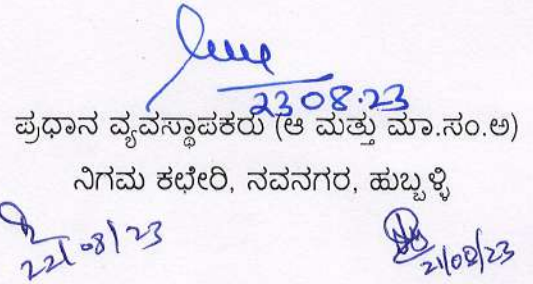 23 08.23
ಪ್ರಧಾನ ವ್ಯವಸ್ಥಾಪಕರು (ಆ ಮತ್ತು ಮಾ.ಸಂ.ಅ)
ನಿಗಮ ಕಛೇರಿ, ನವನಗರ, ಹುಬ್ಬಳ್ಳಿ
22/08/23
21/08/23